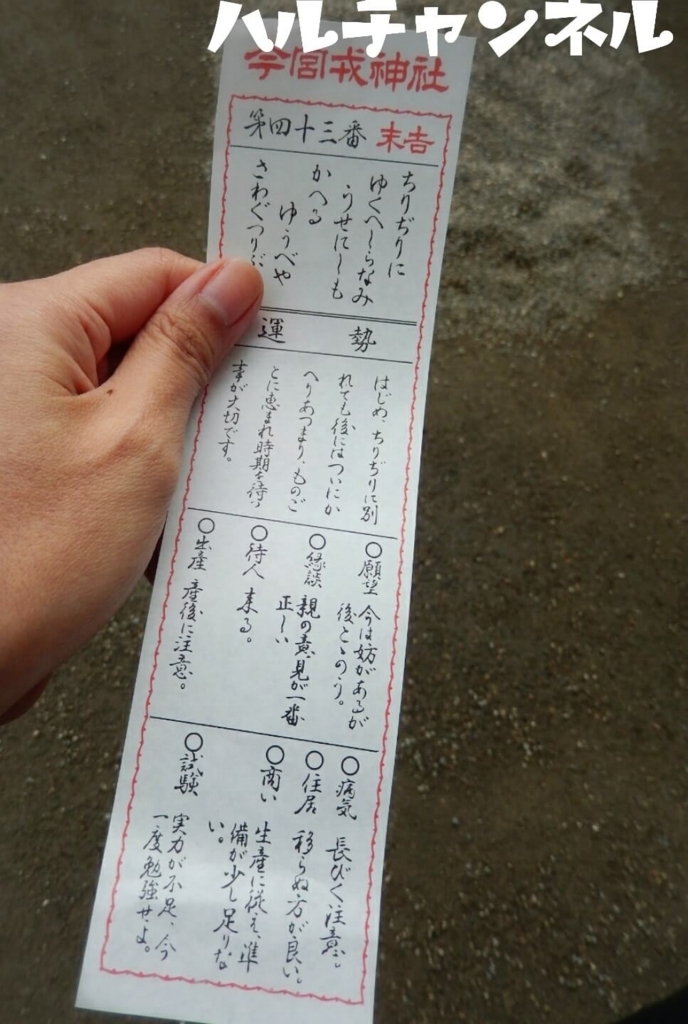 ハルチャンネル
今宮戎神社
第四十三番 末吉
ちりぢりに
ゆくへしらなみ
うせにしも
かへる
ゆうべや
さわぐつり
運勢
はじめ、ちりぢりに別
れても後にはついにか
へりあつまり、ものご
とに恵まれ時期を待つ
事が大切です。
○願望 今は妨があるが
後とゝのう。
○縁談 親の意見が一番
正しい
○待人 来る。
○出産 産後に注意。
○病気 長びく注意。
○住居 移らぬ方が良い。
○商い 生産に従え、準
備が少し足りな
い。
○試験 実力が不足、今
一度勉強せよ。